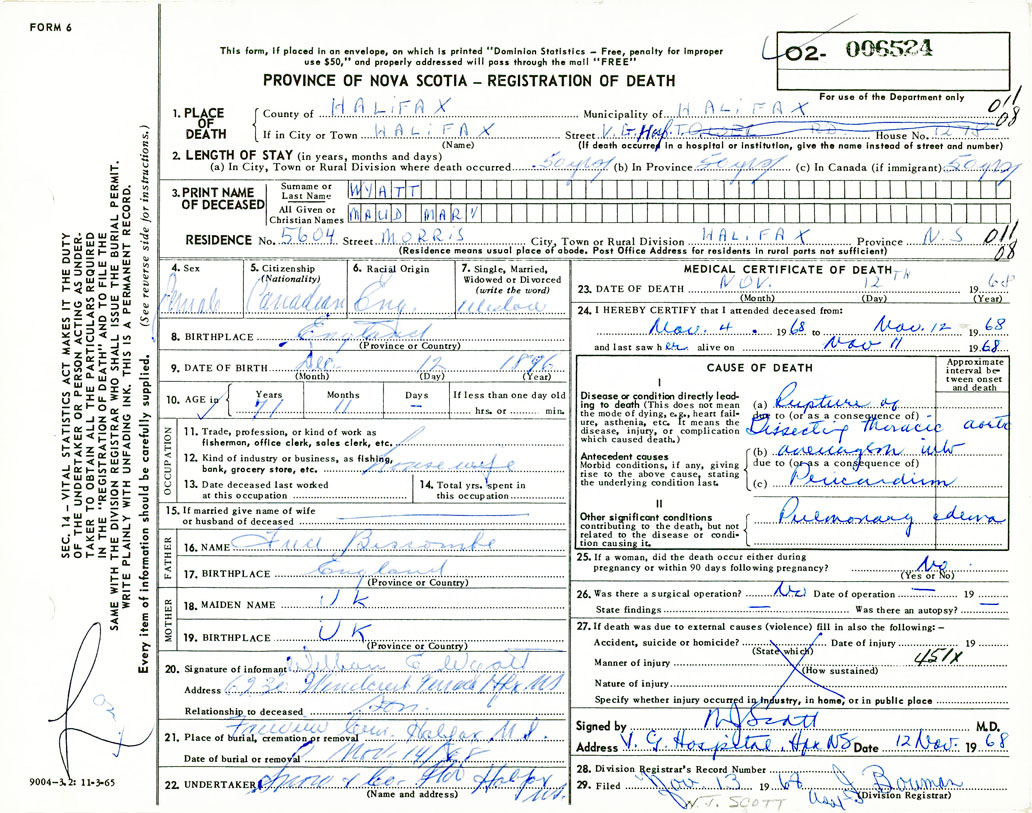 FORM 6
This form, if placed in an envelope, on which is printed "Dominion Statistics — Free, penalty for improper
use $50," and properly addressed will pass through the mail "FREE"
O2- 006524
For use of the Department only
PROVINCE OF NOVA SCOTIA — REGISTRATION OF DEATH
011
08
1. PLACE OF DEATH
County of HALIFAX Municipality of HALIFAX
If in City or Town HALIFAX Street V.G. Hosp. House No.
(Name) (If death occurred in a hospital or institution, give the name instead of street and number)
2. LENGTH OF STAY (in years, months and days)
(a) In City, Town or Rural Division where death occurred 50 yrs (b) In Province 50 yrs (c) In Canada (if immigrant) 50 yrs
3. PRINT NAME OF DECEASED
Surname or Last Name WYATT
All Given or Christian Names MAUD MARY
RESIDENCE No. 5604 Street MORRIS City, Town or Rural Division HALIFAX Province N.S
(Residence means usual place of abode. Post Office Address for residents in rural parts not sufficient)
011
08
SEC. 14 – VITAL STATISTICS ACT MAKES IT THE DUTY
OF THE UNDERTAKER OR PERSON ACTING AS UNDER-
TAKER TO OBTAIN ALL THE PARTICULARS REQUIRED
IN THE "REGISTRATION OF DEATH" AND TO FILE THE
SAME WITH THE DIVISION REGISTRAR WHO SHALL ISSUE THE BURIAL PERMIT.
WRITE PLAINLY WITH UNFADING INK. THIS IS A PERMANENT RECORD.
Every item of information should be carefully supplied. (See reverse side for instructions.)
4. Sex Female
5. Citizenship (Nationality) Canadian
6. Racial Origin Eng.
7. Single, Married, Widowed or Divorced (write the word) Widow
8. BIRTHPLACE England
(Province or Country)
9. DATE OF BIRTH Dec. 12 1896
(Month) (Day) (Year)
10. AGE in Years 71 Months 11 Days – If less than one day old hrs. or min.
OCCUPATION
11. Trade, profession, or kind of work as
fisherman, office clerk, sales clerk, etc.
12. Kind of industry or business, as fishing,
bank, grocery store, etc. Housewife
13. Date deceased last worked
at this occupation
14. Total yrs. spent in
this occupation
15. If married give name of wife
or husband of deceased
FATHER
16. NAME Biscombe
17. BIRTHPLACE England
(Province or Country)
MOTHER
18. MAIDEN NAME U K
19. BIRTHPLACE U K
(Province or Country)
20. Signature of informant William E Wyatt
Address Terrace Hfx NS
Relationship to deceased Son.
21. Place of burial, cremation or removal Fairview Cem. Halifax N.S.
Date of burial or removal Nov. 14/68
22. UNDERTAKER Snow & Co. Ltd Halifax NS.
(Name and address)
MEDICAL CERTIFICATE OF DEATH
23. DATE OF DEATH NOV. 12TH 19 68
(Month) (Day) (Year)
24. I HEREBY CERTIFY that I attended deceased from:
Nov. 4 . 1968 to Nov. 12 1968
and last saw her alive on Nov 11 1968
CAUSE OF DEATH
Approximate interval between onset and death
I
Disease or condition directly lead-
ing to death (This does not mean
the mode of dying, e.g., heart fail-
ure, asthenia, etc. It means the
disease, injury, or complication
which caused death.)
(a) Rupture of
due to (or as a consequence of)
Dissecting Thoracic aortic
Antecedent causes
Morbid conditions, if any, giving
rise to the above cause, stating
the underlying condition last.
(b) aneurysm into
due to (or as a consequence of)
(c) Pericardium
II
Other significant conditions
contributing to the death, but not
related to the disease or condi-
tion causing it.
Pulmonary edema
25. If a woman, did the death occur either during
pregnancy or within 90 days following pregnancy? No
(Yes or No)
26. Was there a surgical operation? No Date of operation — 19
State findings — Was there an autopsy? —
27. If death was due to external causes (violence) fill in also the following: –
Accident, suicide or homicide? Date of injury 19
(State which)
Manner of injury 451X
(How sustained)
Nature of injury
Specify whether injury occurred in industry, in home, or in public place
Signed by N J Scott M.D.
Address V. G Hospital, Hfx NS Date 12 Nov. 1968
28. Division Registrar's Record Number
29. Filed Nov 13 1968 J Bowman
(Division Registrar)
N.J. SCOTT
9004-3.2: 11-3-65